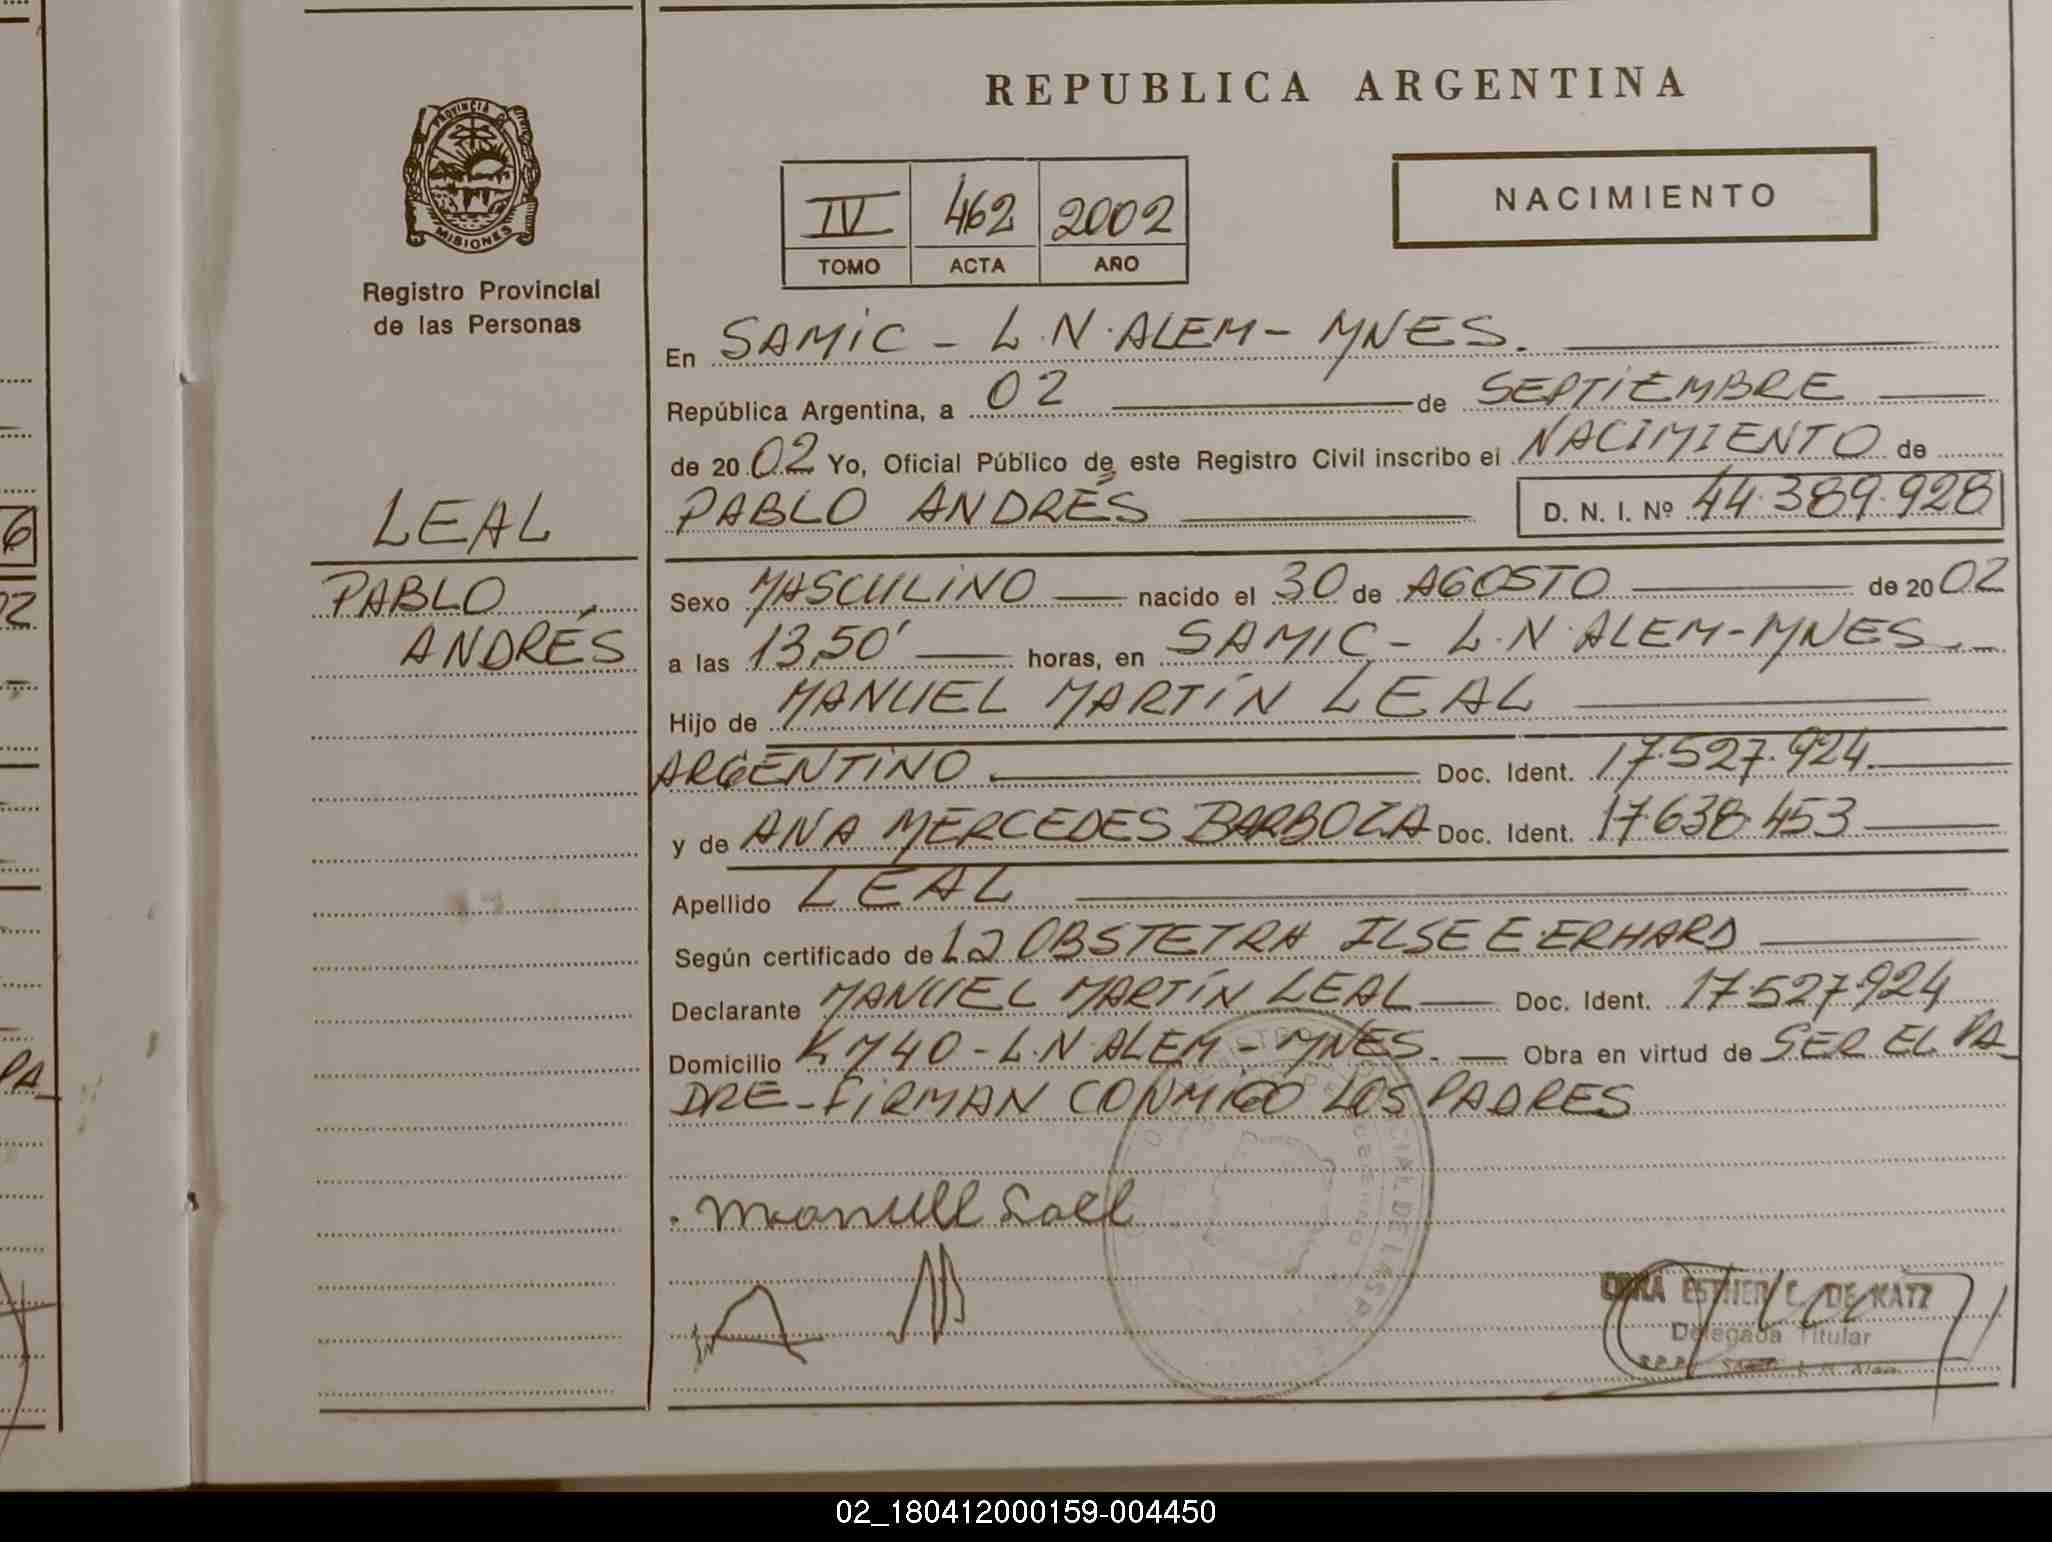 REPUBLICA ARGENTINA
PROVINCIA DE
MISIONES
Registro Provincial
de las Personas
IV 462 2002
TOMO ACTA AÑO
NACIMIENTO
En SAMIC - L.N. ALEM - MNES.
República Argentina, a 02 de SEPTIEMBRE
de 2002 Yo, Oficial Público de este Registro Civil inscribo el NACIMIENTO de
PABLO ANDRÉS D. N. I. Nº 44.389.928
LEAL
PABLO
ANDRÉS
Sexo MASCULINO nacido el 30 de AGOSTO de 2002
a las 13,50' horas, en SAMIC - L.N. ALEM - MNES.
Hijo de MANUEL MARTÍN LEAL
ARGENTINO. Doc. Ident. 17.527.924
y de ANA MERCEDES BARBOZA Doc. Ident. 17.638.453
Apellido LEAL
Según certificado de La OBSTETRA ILSE E. ERHARD
Declarante MANUEL MARTÍN LEAL Doc. Ident. 17.527.924
Domicilio KM 40 - L.N. ALEM - MNES. Obra en virtud de SER EL PA
DRE - FIRMAN CONMIGO LOS PADRES
ESTHER C. DE KATZ
Delegada Titular
6
02
PA
02_180412000159-004450